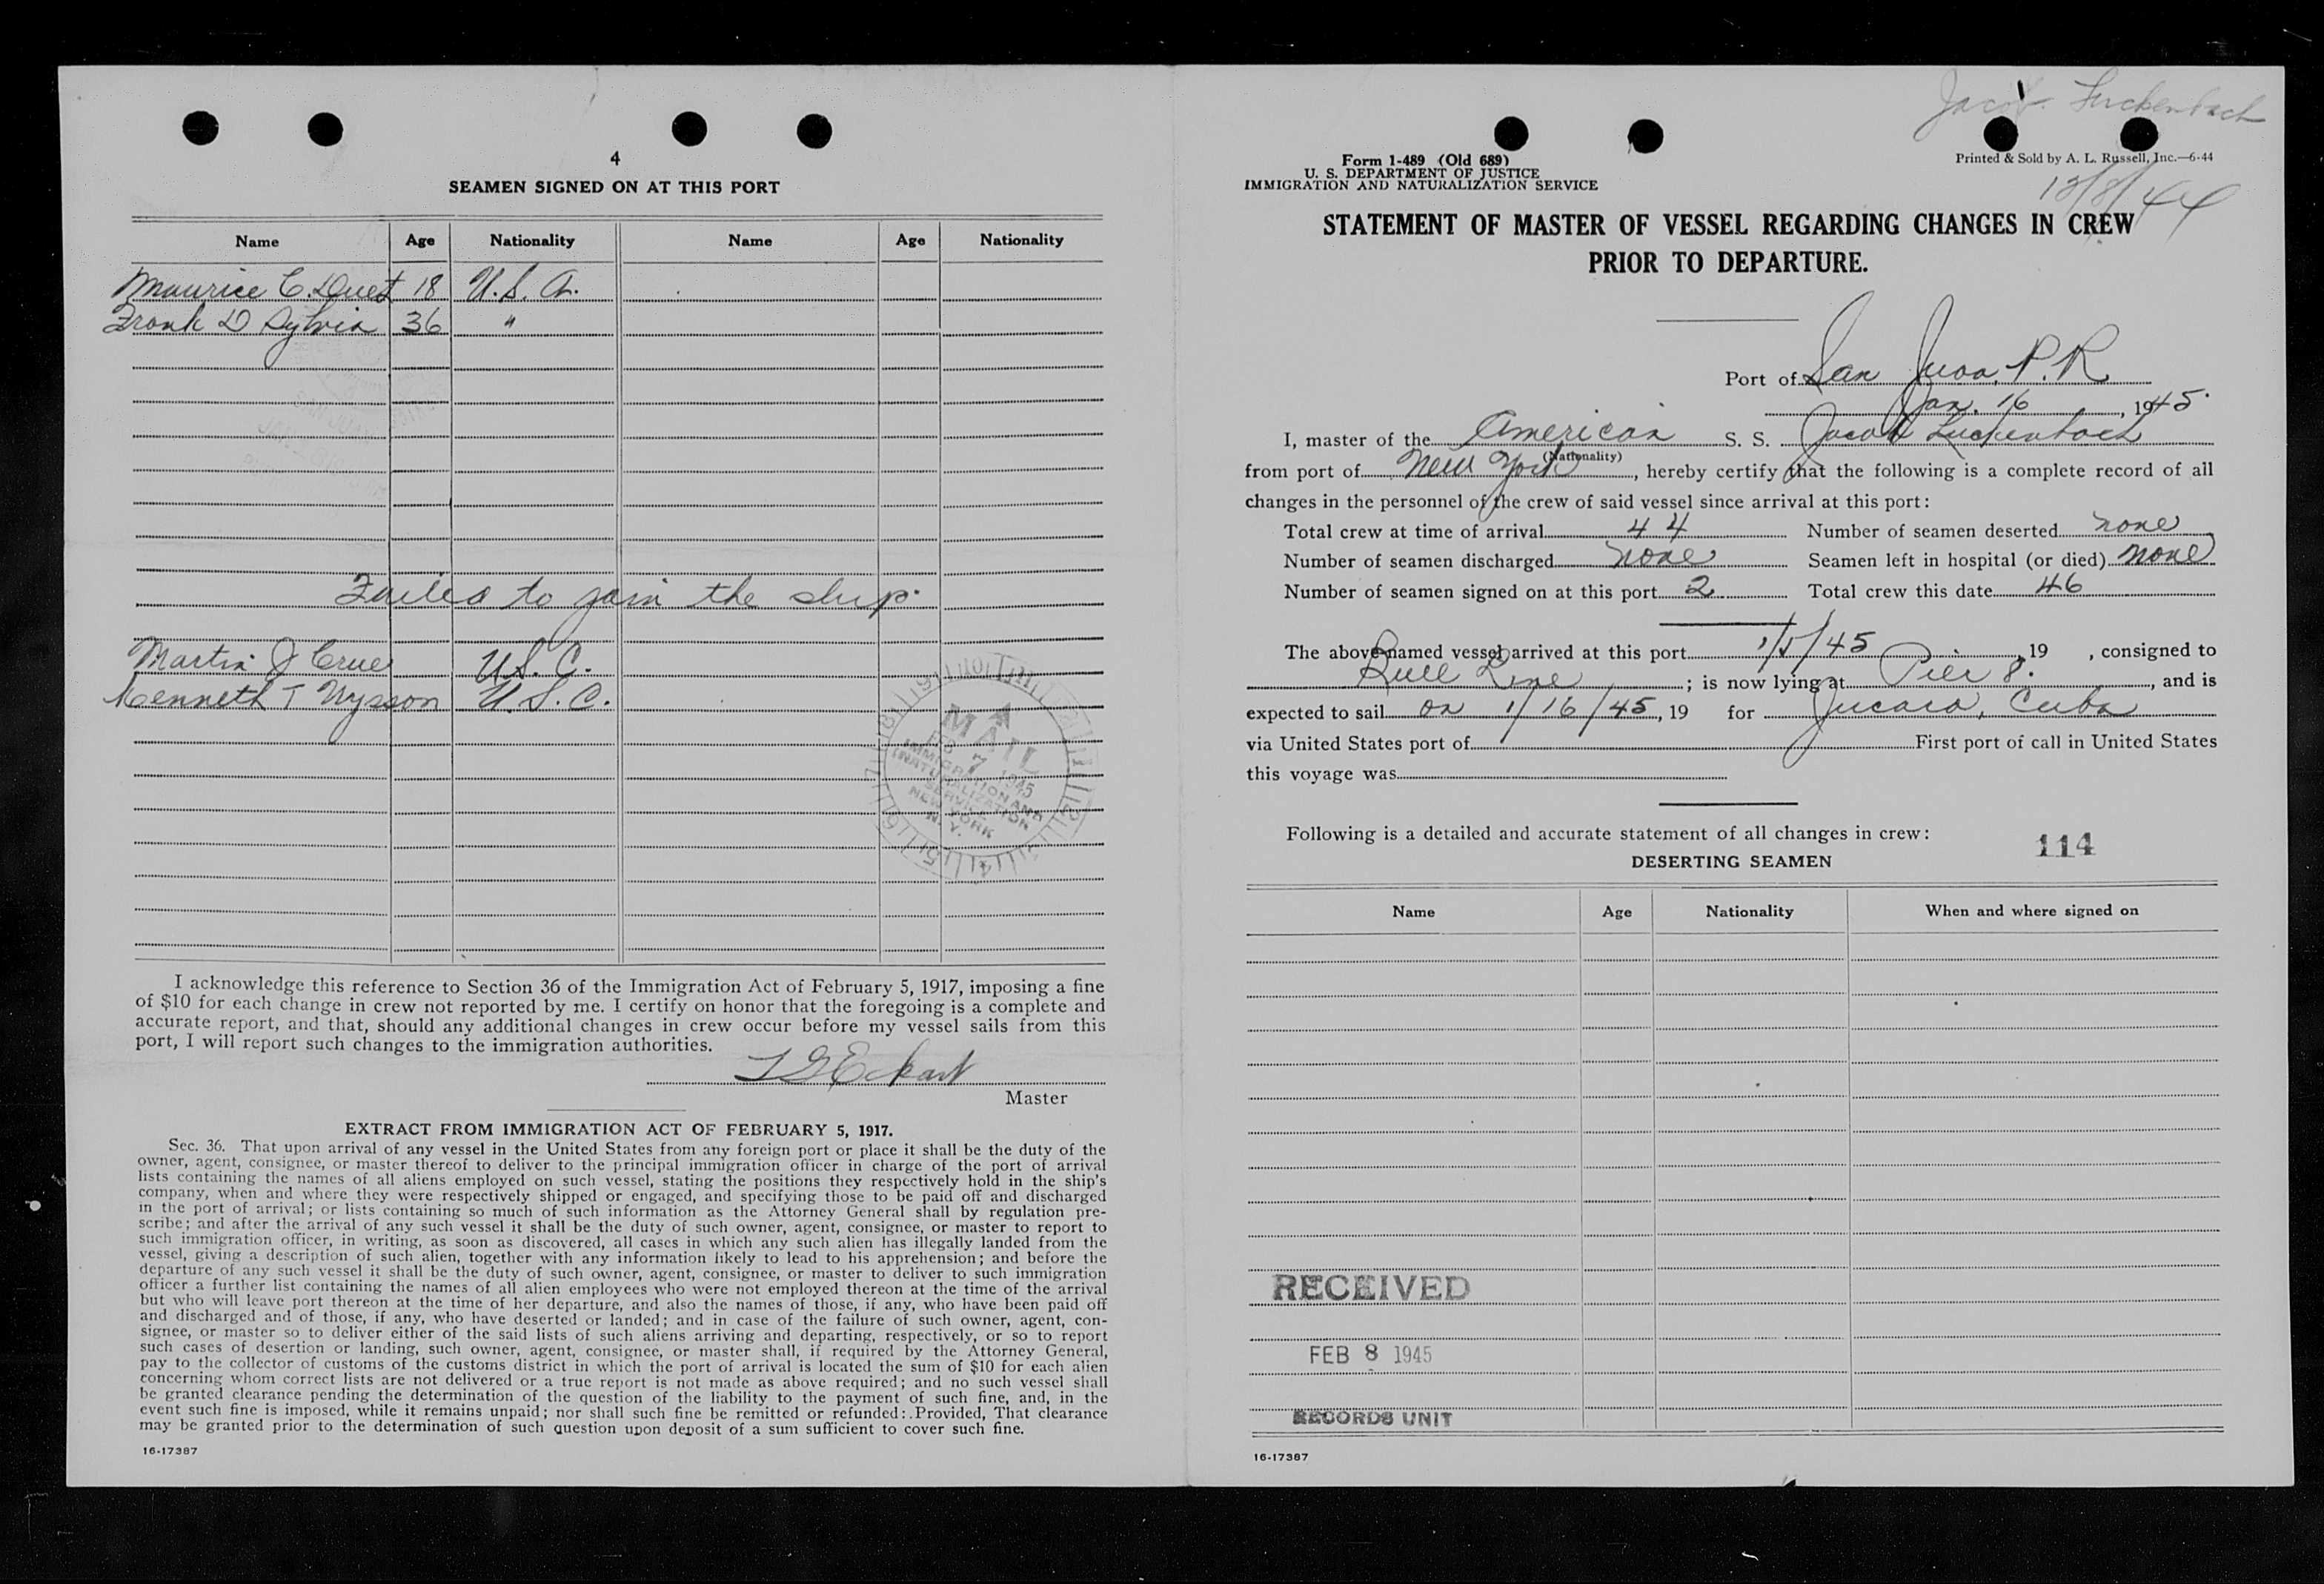 4
SEAMEN SIGNED ON AT THIS PORT
Name Age Nationality Name Age Nationality
Maurice C. Duet 18 U.S.A.
Frank D Sylvia 36 "
Failed to join the ship.
Martin J Crue U.S.C.
Kenneth T Nysson U.S.C.
MAIL
FEB 7 1945
IMMIGRATION AND
NATURALIZATION
SERVICE
NEW YORK
N. Y.
I acknowledge this reference to Section 36 of the Immigration Act of February 5, 1917, imposing a fine
of $10 for each change in crew not reported by me. I certify on honor that the foregoing is a complete and
accurate report, and that, should any additional changes in crew occur before my vessel sails from this
port, I will report such changes to the immigration authorities.
Eckart
Master
EXTRACT FROM IMMIGRATION ACT OF FEBRUARY 5, 1917.
Sec. 36. That upon arrival of any vessel in the United States from any foreign port or place it shall be the duty of the
owner, agent, consignee, or master thereof to deliver to the principal immigration officer in charge of the port of arrival
lists containing the names of all aliens employed on such vessel, stating the positions they respectively hold in the ship's
company, when and where they were respectively shipped or engaged, and specifying those to be paid off and discharged
in the port of arrival; or lists containing so much of such information as the Attorney General shall by regulation pre-
scribe; and after the arrival of any such vessel it shall be the duty of such owner, agent, consignee, or master to report to
such immigration officer, in writing, as soon as discovered, all cases in which any such alien has illegally landed from the
vessel, giving a description of such alien, together with any information likely to lead to his apprehension; and before the
departure of any such vessel it shall be the duty of such owner, agent, consignee, or master to deliver to such immigration
officer a further list containing the names of all alien employees who were not employed thereon at the time of the arrival
but who will leave port thereon at the time of her departure, and also the names of those, if any, who have been paid off
and discharged and of those, if any, who have deserted or landed; and in case of the failure of such owner, agent, con-
signee, or master so to deliver either of the said lists of such aliens arriving and departing, respectively, or so to report
such cases of desertion or landing, such owner, agent, consignee, or master shall, if required by the Attorney General,
pay to the collector of customs of the customs district in which the port of arrival is located the sum of $10 for each alien
concerning whom correct lists are not delivered or a true report is not made as above required; and no such vessel shall
be granted clearance pending the determination of the question of the liability to the payment of such fine, and, in the
event such fine is imposed, while it remains unpaid; nor shall such fine be remitted or refunded:.Provided, That clearance
may be granted prior to the determination of such question upon deposit of a sum sufficient to cover such fine.
16-17387
Jacob Luckenbach
Form 1-489 (Old 689)
U. S. DEPARTMENT OF JUSTICE
IMMIGRATION AND NATURALIZATION SERVICE
Printed & Sold by A. L. Russell, Inc.—6-44
12/8/44
STATEMENT OF MASTER OF VESSEL REGARDING CHANGES IN CREW
PRIOR TO DEPARTURE.
Port of San Juan, P.R.
Jan. 16, 1945.
I, master of the American S. S. Jacob Luckenbach
(Nationality)
from port of New York, hereby certify that the following is a complete record of all
changes in the personnel of the crew of said vessel since arrival at this port:
Total crew at time of arrival 44 Number of seamen deserted none
Number of seamen discharged none Seamen left in hospital (or died) none
Number of seamen signed on at this port 2 Total crew this date 46
The above-named vessel arrived at this port 1/5/45, 19 , consigned to
Bull Line; is now lying at Pier 8., and is
expected to sail on 1/16/45, 19 for Jucaro, Cuba
via United States port of First port of call in United States
this voyage was
Following is a detailed and accurate statement of all changes in crew:
114
DESERTING SEAMEN
Name Age Nationality When and where signed on
RECEIVED
FEB 8 1945
RECORDS UNIT
16-17387